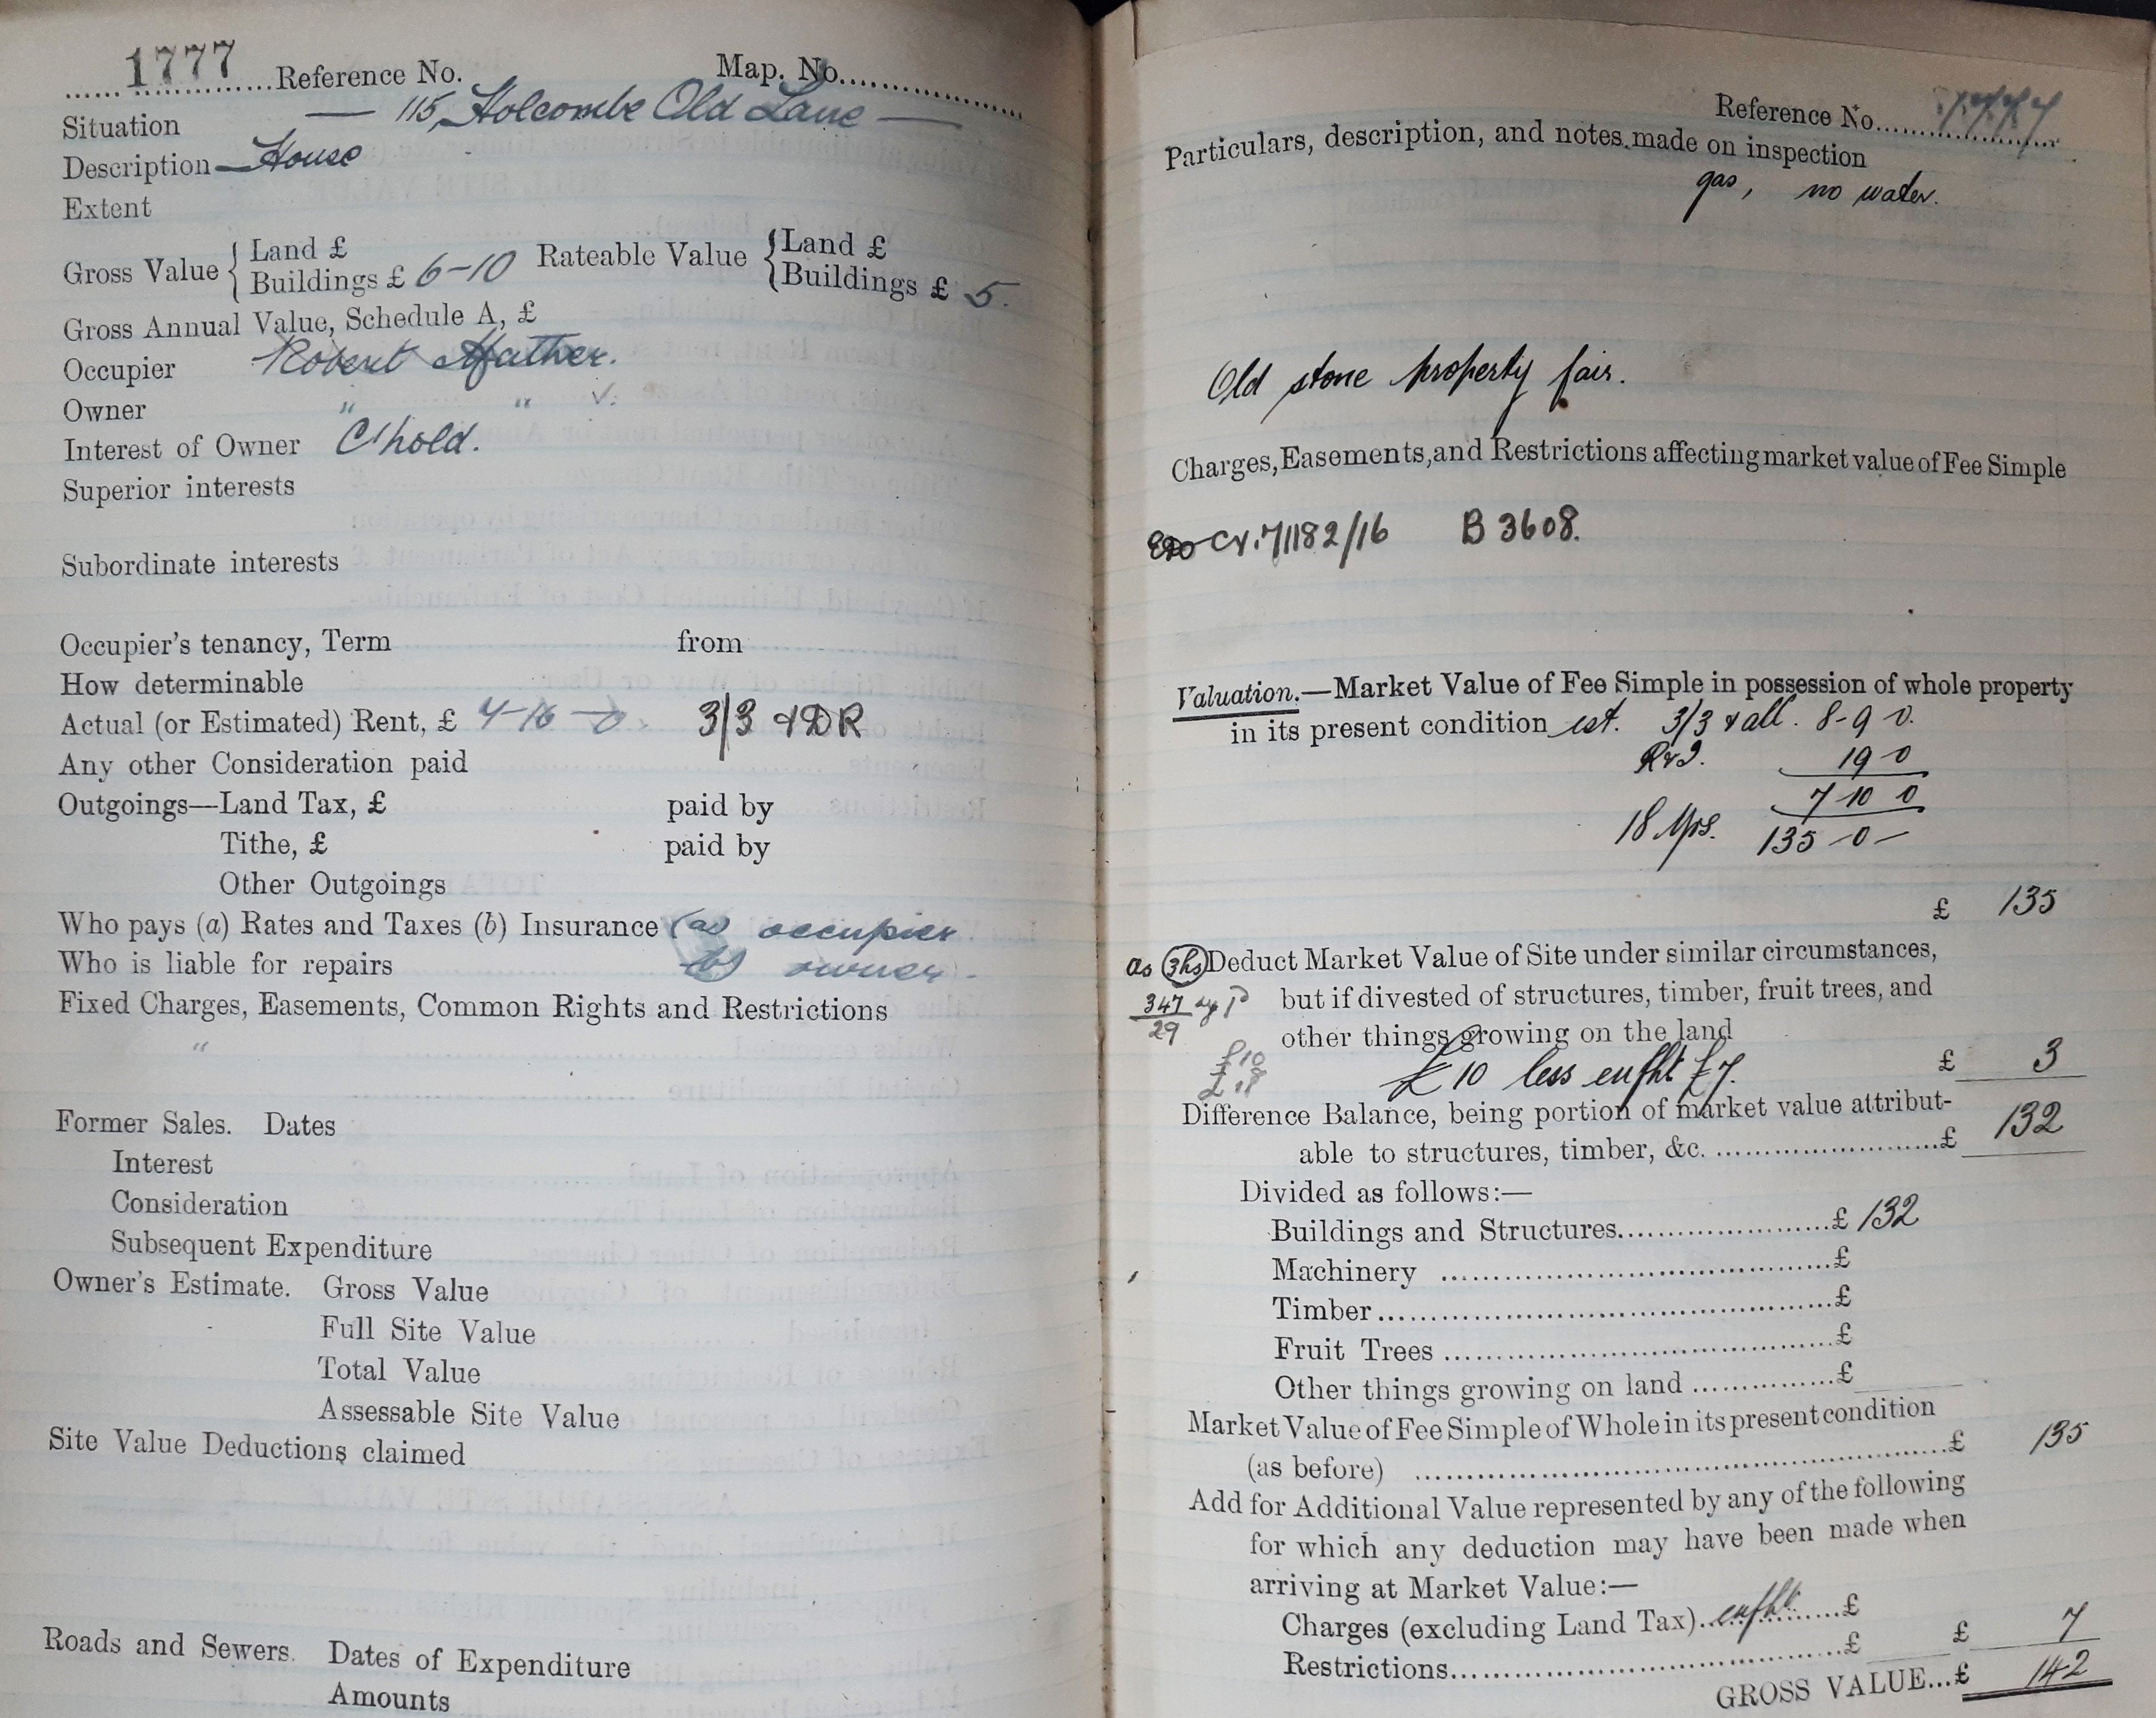 1777 Reference No. Map. No.
Situation — 115, Holcombe Old Lane —
Description — House
Extent
Gross Value { Land £
Buildings £ 6-10 Rateable Value { Land £
Buildings £ 5.
Gross Annual Value, Schedule A, £
Occupier Robert Mather.
Owner " " ✓.
Interest of Owner C'hold.
Superior interests
Subordinate interests
Occupier's tenancy, Term from
How determinable
Actual (or Estimated) Rent, £ 4-16-0. 3/3 + DR
Any other Consideration paid
Outgoings—Land Tax, £ paid by
Tithe, £ paid by
Other Outgoings
Who pays (a) Rates and Taxes (b) Insurance (a) occupier
Who is liable for repairs (b) owner -
Fixed Charges, Easements, Common Rights and Restrictions
"
Former Sales. Dates
Interest
Consideration
Subsequent Expenditure
Owner's Estimate. Gross Value
Full Site Value
Total Value
Assessable Site Value
Site Value Deductions claimed
Roads and Sewers. Dates of Expenditure
Amounts
Reference No. 1777
Particulars, description, and notes made on inspection
gas, no water.
Old stone property fair.
Charges, Easements, and Restrictions affecting market value of Fee Simple
71182/16 B 3608.
Valuation.—Market Value of Fee Simple in possession of whole property
in its present condition est. 3/3 & all. 8-9 0.
19-0
7 10 0
18 Yps. 135-0-
£ 135
as 3hs Deduct Market Value of Site under similar circumstances,
347 but if divested of structures, timber, fruit trees, and
29 other things growing on the land
£10
£10 less enfht £7. £ 3
Difference Balance, being portion of market value attribut-
able to structures, timber, &c. £ 132
Divided as follows:—
Buildings and Structures £ 132
Machinery £
Timber £
Fruit Trees £
Other things growing on land £
Market Value of Fee Simple of Whole in its present condition
(as before) £ 135
Add for Additional Value represented by any of the following
for which any deduction may have been made when
arriving at Market Value:—
Charges (excluding Land Tax) enfht £
Restrictions £ £ 7
GROSS VALUE...£ 142